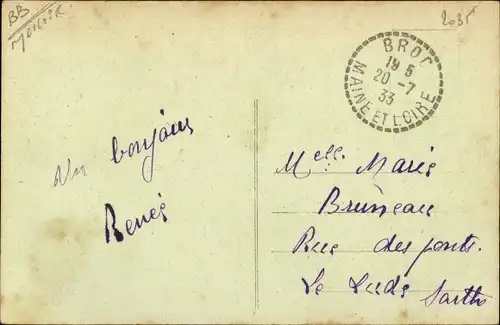 BB
2035
BROC
19 5
20 -7
33
MAINE ET LOIRE
Un bonjour
Renée
Melle Marie
Bruneau
Rue des ponts
Le Lude
Sarthe